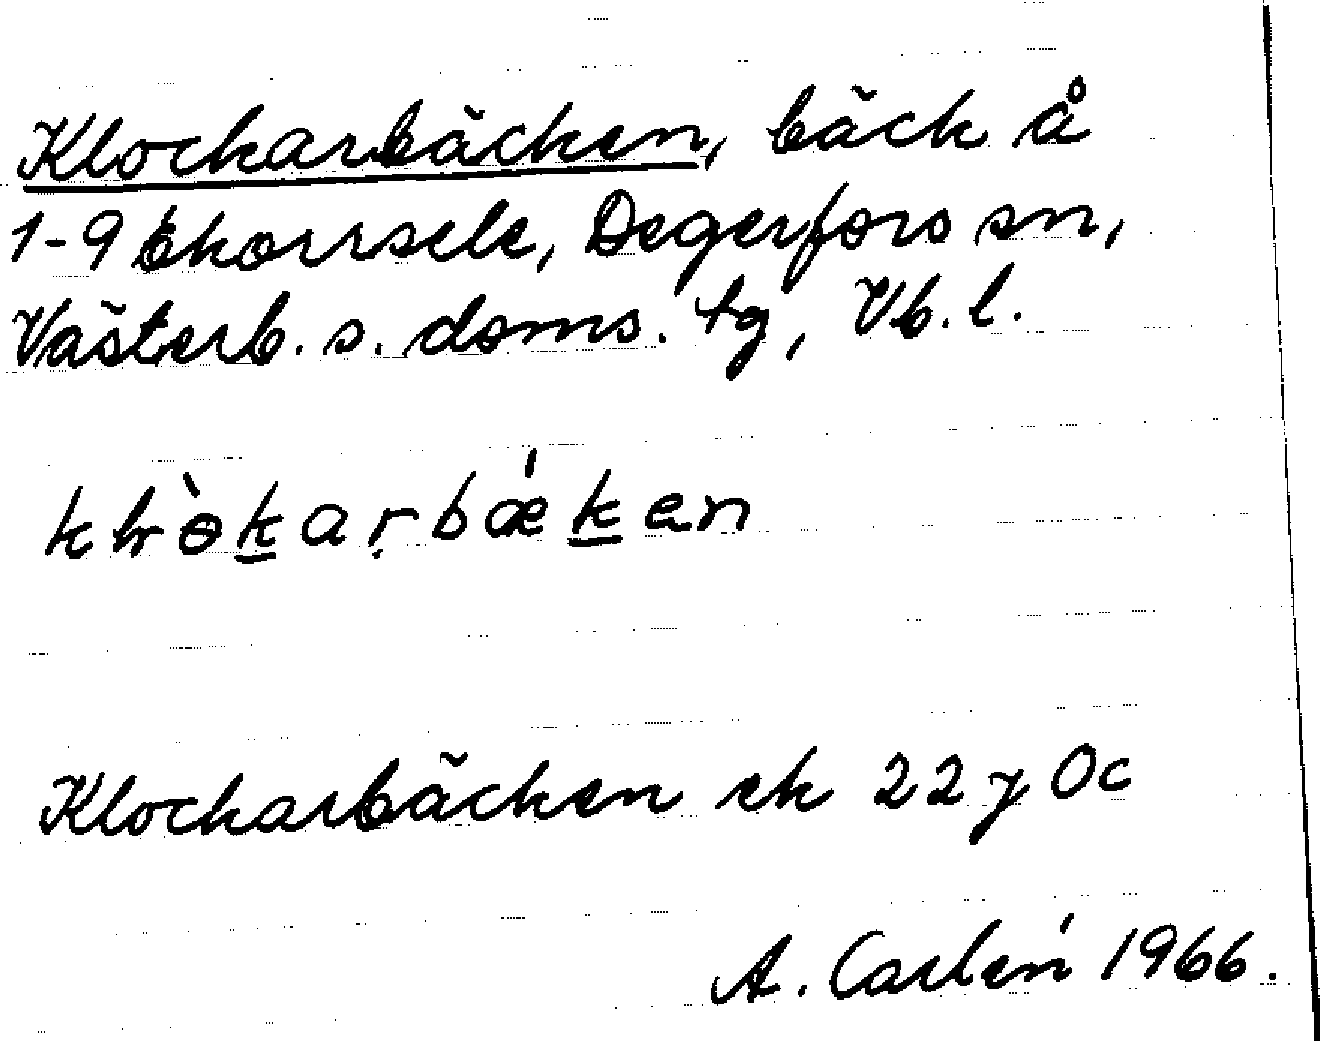 Klockarbäcken, bäck å
1-9 Ekorrsele, Degerfors sn,
Västerb. s. doms. tg, Vb. l.
Klockarbäcken ek 22 j 0c
A. Carlén 1966.